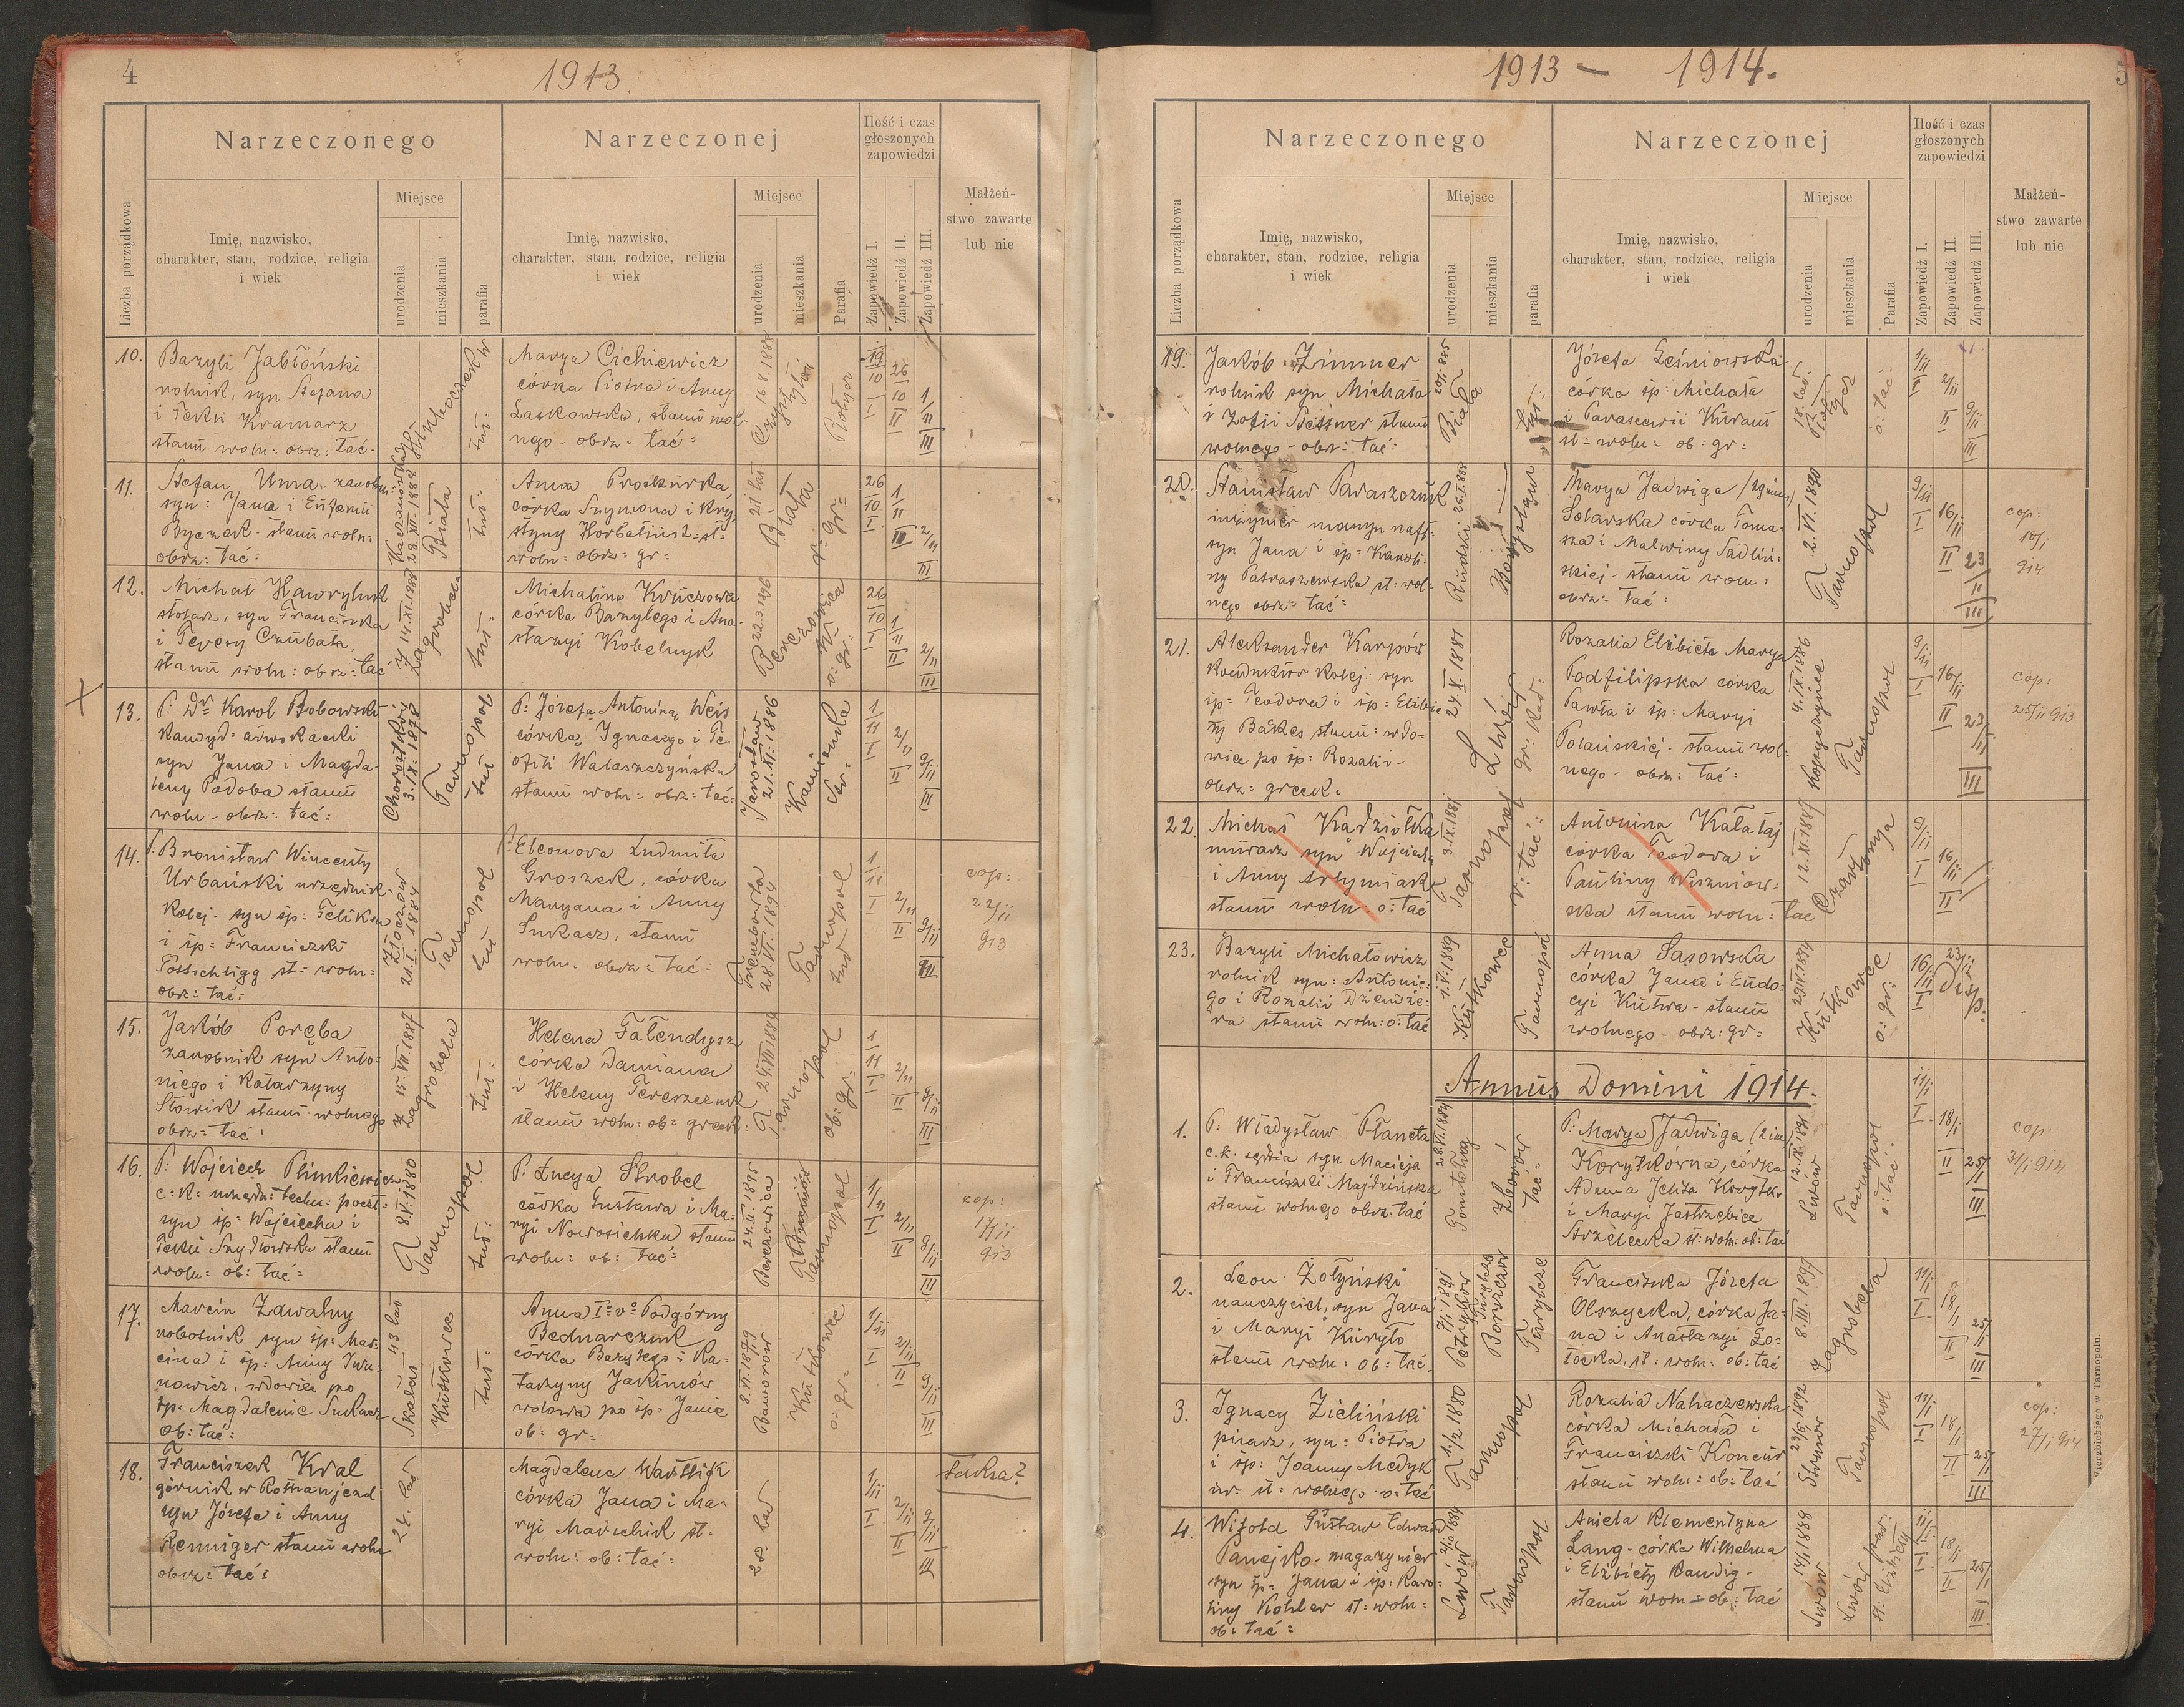 4
1913.
Narzeczonego
Narzeczonej
Ilość i czas
głoszonych
zapowiedzi
Małżeń-
stwo zawarte
lub nie
Liczba porządkowa
Imię, nazwisko,
charakter, stan, rodzice, religia
i wiek
Miejsce
urodzenia
mieszkania
parafia
Imię, nazwisko,
charakter, stan, rodzice, religia
i wiek
Miejsce
urodzenia
mieszkania
Parafia
Zapowiedź I.
Zapowiedź II.
Zapowiedź III.
10.
Bazyli Jabłoński
rolnik, syn Stefana
i Tekli Kramarz
stanu woln: obrz: łać.
tut:
Marya Cichiewicz
córka Piotra i Anny
Laskowska, stanu wol-
nego - obrz: łać:
19/10 I
26/10 II
1/11 III
11.
Stefan Uma zarobn:
syn: Jana i Eufemii
Byczek stanu woln:
obrz: łać:
28.XII.1888
Biała
tut:
Anna Proskurka
córka Szymona i Kry-
styny Horbaliuk - st:
woln: obrz: gr:
21 lat
Biała
o: gr:
26/10 I
1/11 II
2/11 III
12.
Michał Hawryluk
stolarz, syn Franciszka
i Teresy Czubata,
stanu woln: obrz: łać
Z 14.XI.1888
Zagrobela
tut:
Michalina Kruczowa
córka Bazylego i Ana-
stazyi Kobelnyk
B 22.2.1896
Berezowica
o: gr:
26/10 I
1/11 II
2/11 III
13.
P: Dr Karol Bobowski
kandyd: adwokacki
syn Jana i Magda-
leny Podoba stanu
woln - obrz: łać:
Chorostków
3.IX.1878
Tarnopol
tut
P: Józefa Antonina Weis
córka Ignacego i Te-
ofili Walaszczyńska
stanu woln: obrz: łać:
Jarosław
21.XI.1886
Kamionka
Str:
1/11 I
2/11 II
9/11 III
14.
P: Bronisław Wincenty
Urbański urzędnik
kolej. syn śp: Feliksa
i śp: Franciszki
Pottschligg st: woln:
obrz: łać:
Złoczów
21.I.1884
Tarnopol
tut
P: Eleonora Ludmiła
Groszek, córka
Maryana i Anny
Łukacz, stanu
woln. obrz: łać:
Trembowla
28.VI.1894
Tarnopol
1/11 I
2/11 II
9/11 III
cop:
22/11
913
15.
Jakób Poręba
zarobnik syn Anto-
niego i Katarzyny
Słowik stanu wolnego
obrz: łać:
Z 15.VII.1887
Zagrobela
tut:
Helena Fałendysz
córka Damiana
i Heleny Tereszczuk
stanu woln: ob: greck:
Tarnopol
ob: gr:
1/11 I
2/11 II
9/11 III
16.
P: Wojciech Plinkiewicz
c: k: urzędn: techn: poczt:
syn śp: Wojciecha i
Tekli Szydłowska stanu
woln: ob: łać:
T 8.IV.1880
Tarnopol
tut:
P: Łucya Strobel
córka Gustawa i Ma-
ryi Nowosielska stanu
woln: ob: łać:
Berezowica
Tarnopol
1/11 I
2/11 II
9/11 III
cop:
17/11
913
17.
Marcin Zawalny
robotnik syn śp: Mar-
cina i śp: Anny Iwa-
nowicz, wdowiec po
śp: Magdalenie Łukacz
ob: łać:
Skałat 43 lat
Kutkowce
tut:
Anna Iº vº Podgórny
Bednarczuk
córka Bazylego i Ka-
tarzyny Jakimów
wdowa po śp: Janie
ob: gr:
Baworów
Kutkowce
o: gr:
1/11 I
2/11 II
9/11 III
18.
Franciszek Kral
górnik w
syn Józefa i Anny
Renniger stanu woln
obrz: łać:
24. lat
Magdalena
córka Jana i Ma-
ryi Marchik st.
woln: ob: łać:
28. lat
1/11 I
2/11 II
9/11 III
Taksa?
5
1913 — 1914.
Narzeczonego
Narzeczonej
Ilość i czas
głoszonych
zapowiedzi
Małżeń-
stwo zawarte
lub nie
Liczba porządkowa
Imię, nazwisko,
charakter, stan, rodzice, religia
i wiek
Miejsce
urodzenia
mieszkania
parafia
Imię, nazwisko,
charakter, stan, rodzice, religia
i wiek
Miejsce
urodzenia
mieszkania
Parafia
Zapowiedź I.
Zapowiedź II.
Zapowiedź III.
19.
Jakób Zimmer
rolnik syn Michała
i Zofii stanu
wolnego - obrz: łać:
Biała
tut:
Józefa Leśniowska
córka śp: Michała
i Parascevii Kuram
st: woln: ob: gr:
18. lat
o: łać:
1/11 I
2/11 II
9/11 III
20.
Stanisław Paraszczuk
inżynier
syn Jana i śp: Karoli-
ny Patraszewska st: wol-
nego obrz: łać:
Rudki 26.I.888
Borysław
Marya Jadwiga
Solarska córka Toma-
sza i Malwiny Sadliń-
skiej - stanu woln:
obrz: łać:
T 2.VI.1890
Tarnopol
9/11 I
16/11 II
23/11 III
cop:
10/1
914
21.
Aleksander Karpów
konduktor kolej: syn
śp: Teodora i śp: Elżbie-
ty Bakes stanu: wdo-
wiec po śp: Rozalii -
obrz: greck:
24.V.1881
Lwów
gr: kat:
Rozalia Elżbieta Marya
Podfilipska córka
Pawła i śp: Maryi
Polańskiej - stanu wol-
nego - obrz: łać:
4.IX.1886
Kopyczyńce
Tarnopol
9/11 I
16/11 II
23/11 III
cop:
25/11 913
22.
Michał Kądziołka
murarz syn Wojciecha
i Anny Artymiak
stanu woln: o: łać
T 3.IX.1881
Tarnopol
r: łać:
Antonina Kałataj
córka Teodora i
Pauliny Wiszniow-
ska stanu woln: łać
12.XI.1887
9/11 I
16/11 II
23.
Bazyli Michałowicz
rolnik syn: Antonie-
go i Rozalii
stanu woln: o: łać
1.V.1889
Kutkowce
Tarnopol
Anna Sasowska
córka Jana i Eudo-
cyi Kutwa - stanu
wolnego - obrz: gr:
Kutkowce
o: gr:
16/11 I
23/11
Disp.
Annus Domini 1914.
1.
P: Władysław Płaneta
c.k. sędzia syn Macieja
i Franciszki Majdzińska
stanu wolnego obrz: łać
28.VI.1884
Zborów
łać:
P: Marya Jadwiga (2 im.)
Korytkówna, córka
Adama Jelita Korytko
i Maryi Jastrzębiec
Strzelecka st: woln: ob: łać
12.IX.1891
Lwów
Tarnopol
o: łać:
11/1 I
18/1 II
25/1 III
cop:
31/1 914
2.
Leon Żołyński
nauczyciel, syn Jana
i Maryi Kuryło
stanu woln: ob: łać.
7/1 1891
Petryków
Turylcze
Borszczów
Turylcze
Franciszka Józefa
Olszycka, córka Ja-
na i Anastazyi Ło-
tocka, st: woln: ob: łać
8.III.1897
Zagrobela
11/1 I
18/1 II
25/1 III
3.
Ignacy Zieliński
pisarz, syn: Piotra
i śp: Joanny Medyk
st: wolnego o: łać
T 1/2 1880
Tarnopol
Rozalia Nahaczewska
córka Michała i
Franciszki Koncur
stanu woln: ob: łać
23/5 1892
Strusów
Tarnopol
11/1 I
18/1 II
25/1 III
cop:
27/1 914
4.
Witold Gustaw Edward
Panejko - magazynier
syn śp: Jana i śp: Karo-
liny Kohler st: woln:
ob: łać:
Lwów
Tarnopol
Aniela Klementyna
Lang - córka Wilhelma
i Elżbiety Kandig -
stanu woln - ob: łać
14/1 1888
Lwów
Lwów par:
st: Elżbiety
11/1 I
18/1 II
25/1 III
Wierzbickiego w Tarnopolu.